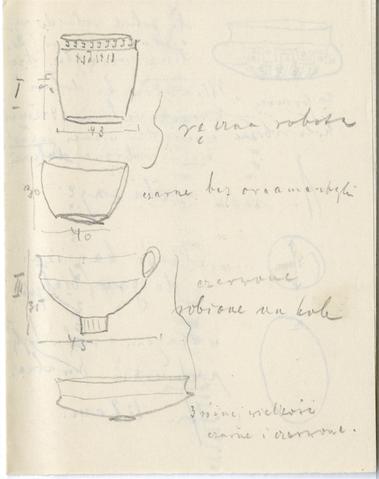 I
43
ręczna robota
30
czarne bez ornamentyki
40
III
35
czerwone
robione na kole
45
3 różnej wielkości
czarne i czerwone.